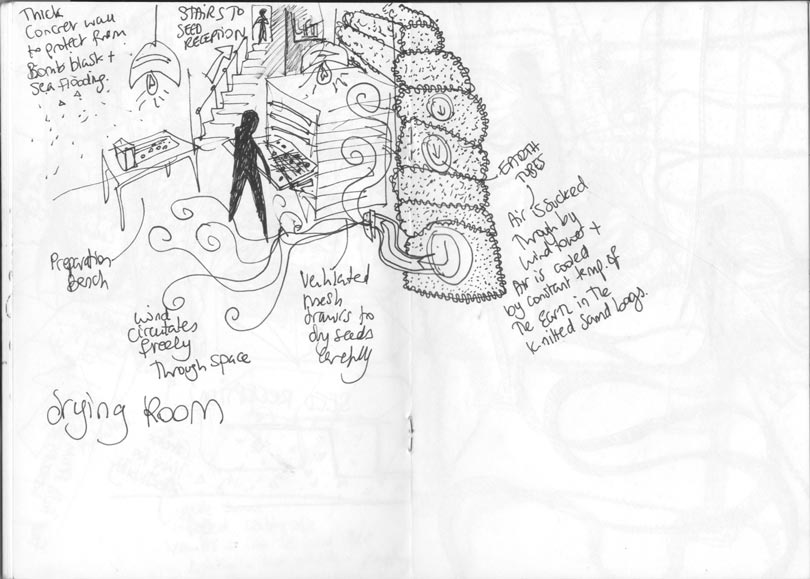 Thick
Concret wall
to protect from
Bomb blast +
sea flooding.
STAIRS TO
SEED
RECEPTION
EARTH
TUBES
Air is sucked
Through by
wind tower +
Air is cooled
by constant temp of
The Earth in the
K-nitted sand bags.
Preparation
Bench
wind
circulates
freely
Through space
Ventilated
mesh
drawers to
dry seeds
carefully
drying Room